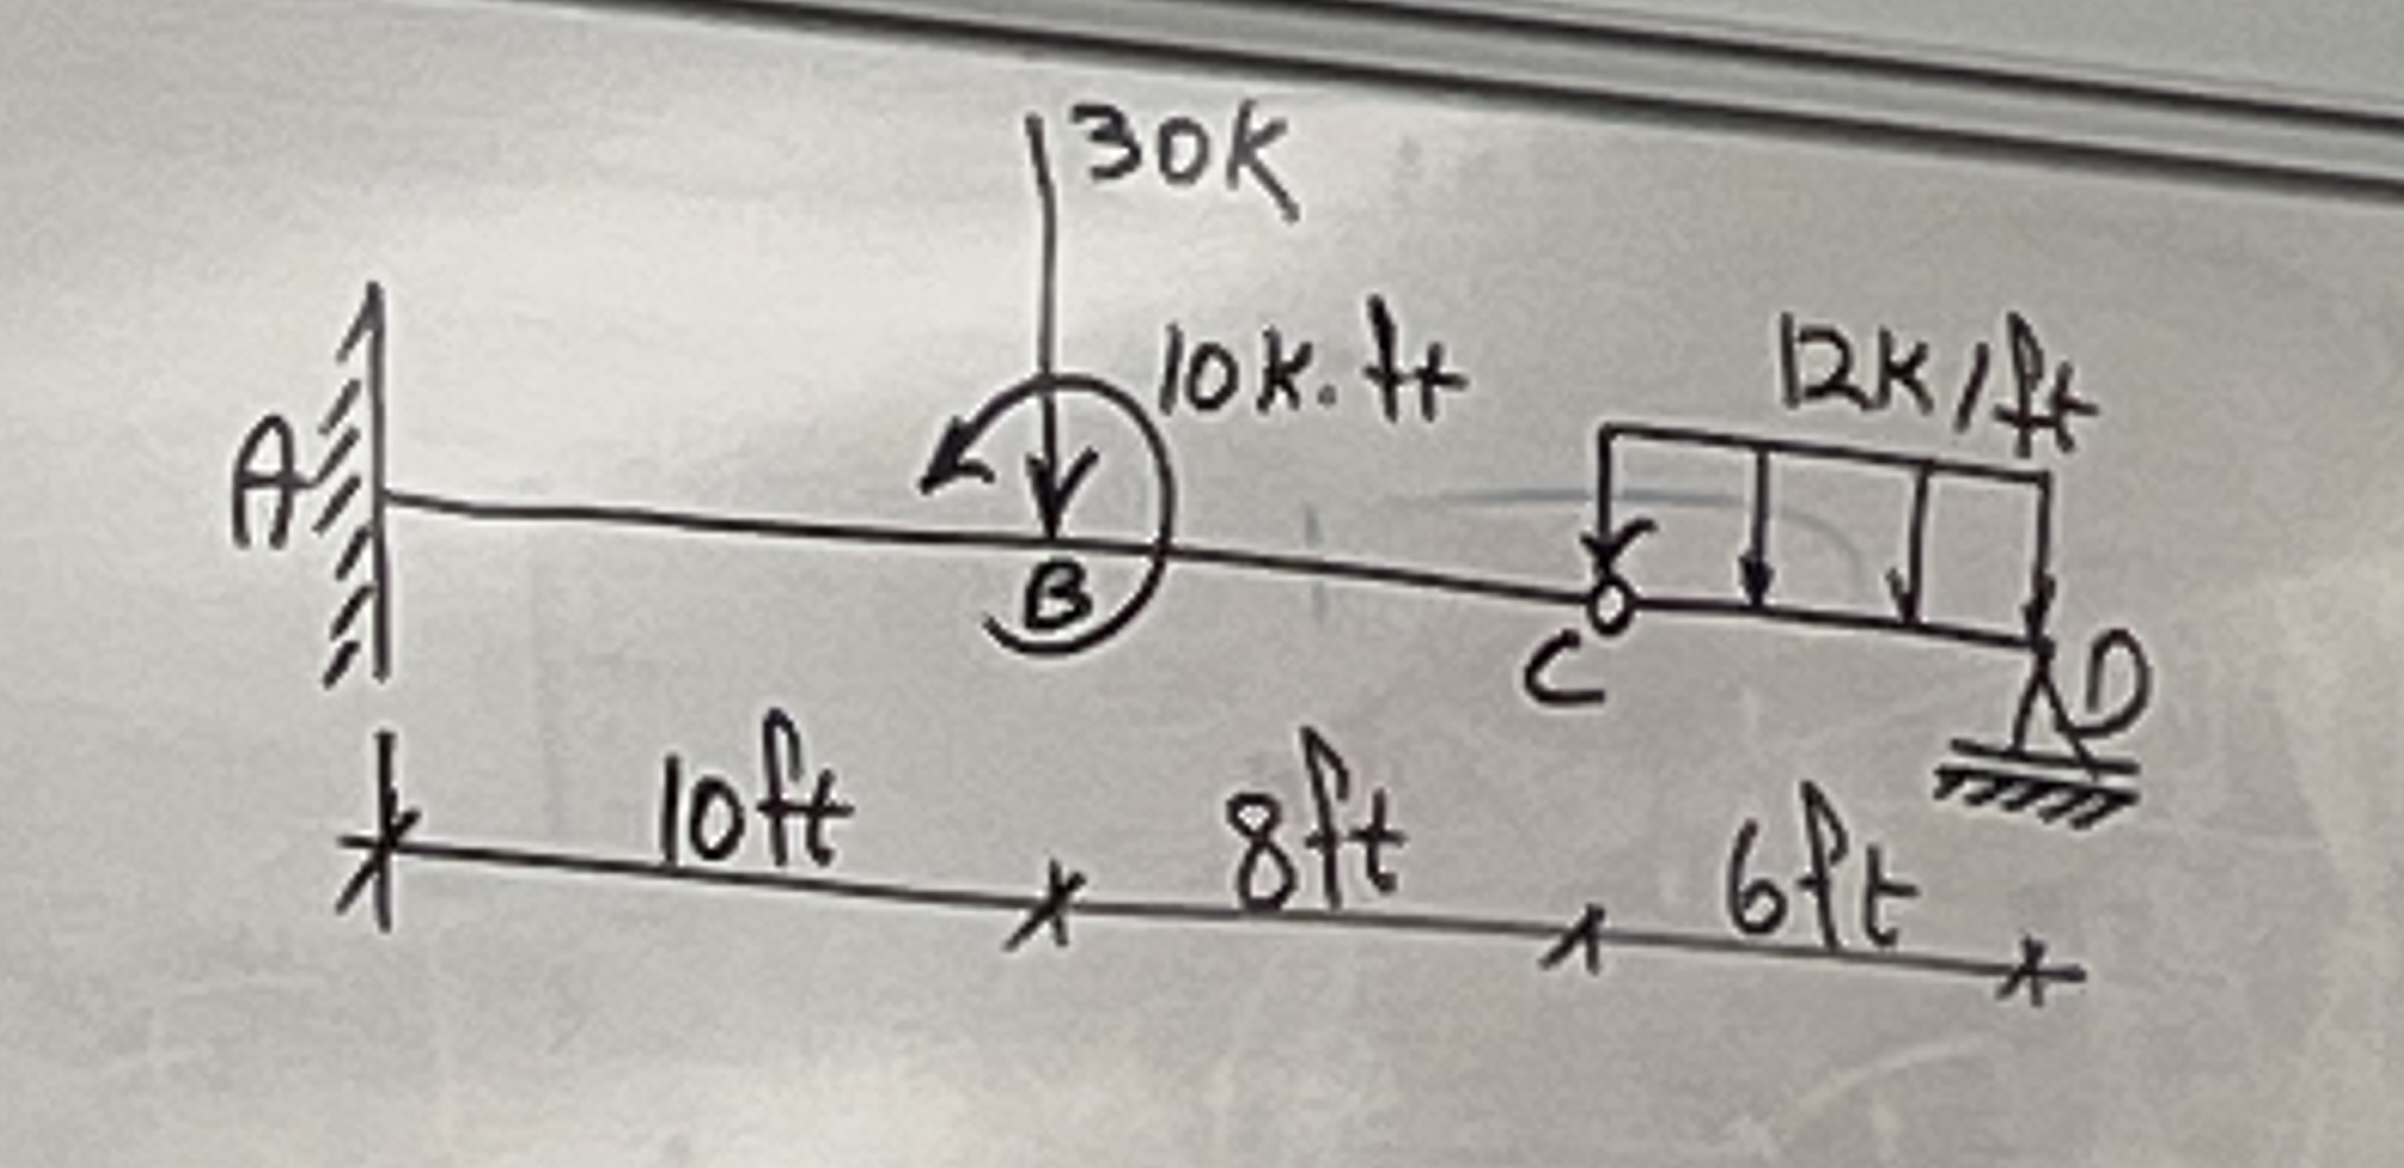 30K
10K.ft
12K/ft
A
B
C
D
10ft
8ft
6ft